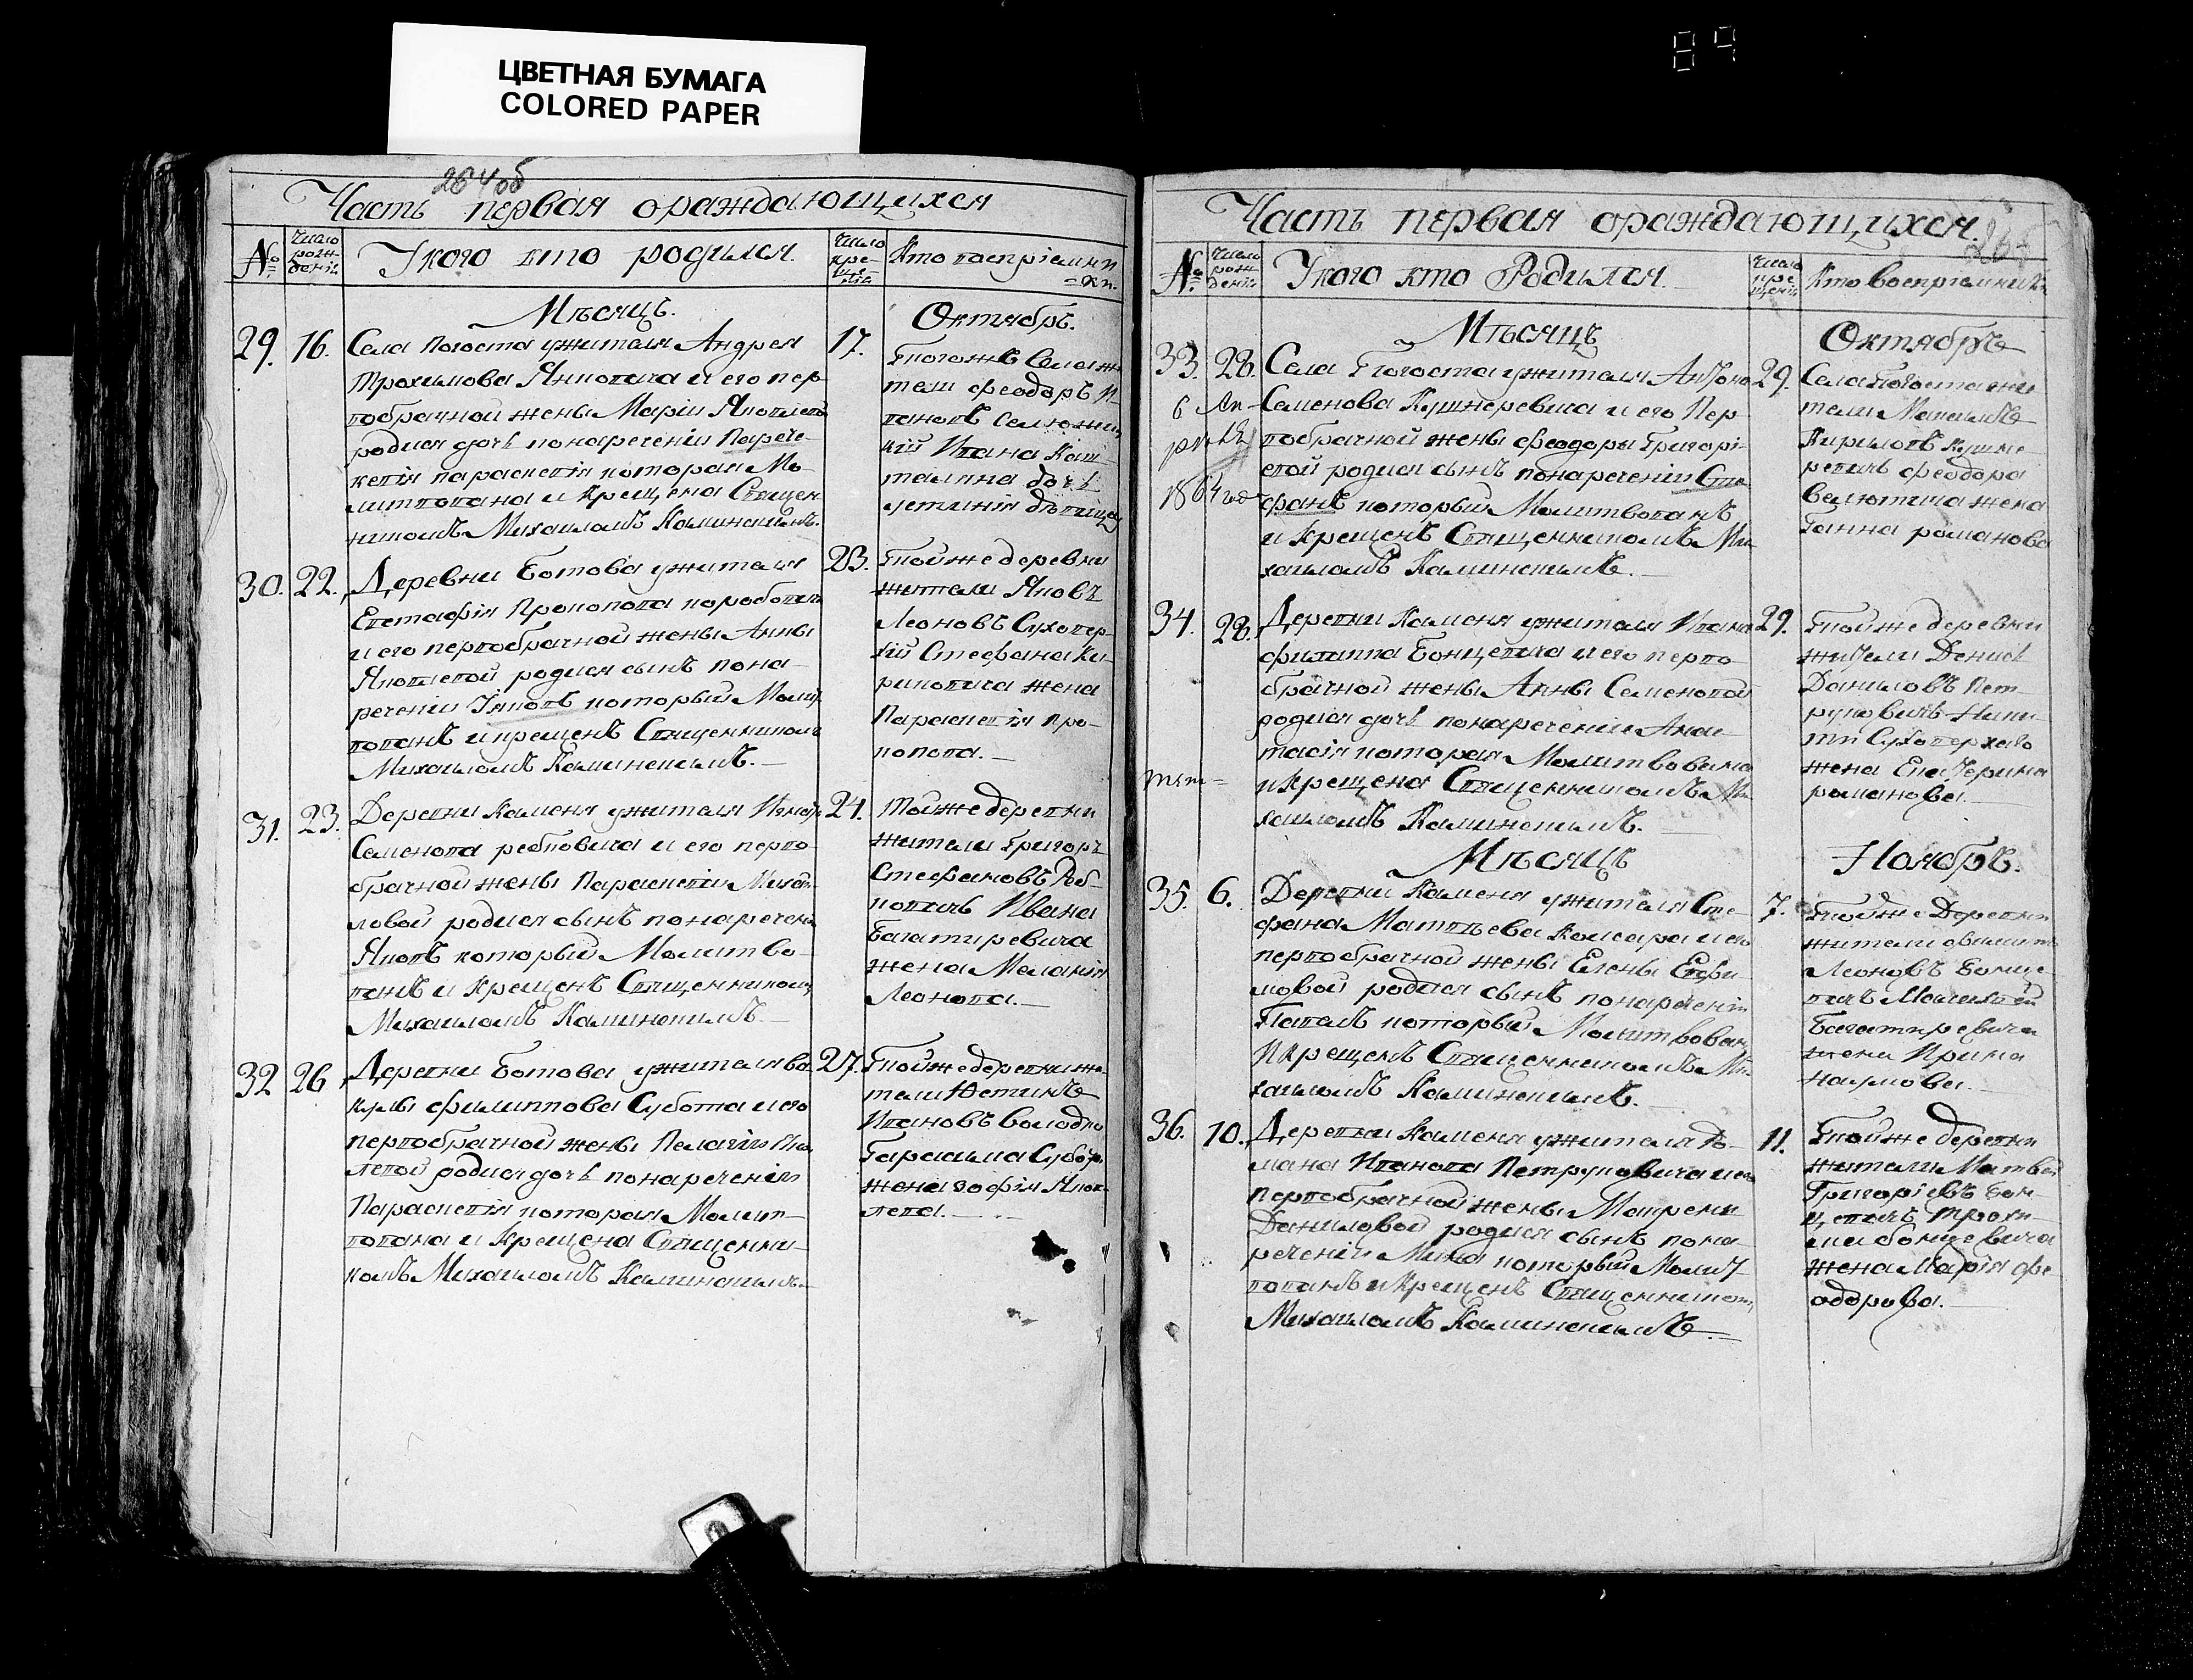 ЦВЕТНАЯ БУМАГА
COLORED PAPER
89
264 об
Часть первая ораждающихся
№
Число рож-
денія
Укого кто родился.
Число кре-
щенія
Кто воспріемни
=ки.
Мѣсяцъ.
Октябрь.
29. 16. Села Погоста ужителя Андрея
Трохимова и его пер
вобрачной жены Маріи Яковлево
родися дочь понаречении
параскевія которая Мо
литвована и крещена Священ
никомъ Михаиломъ Каминскимъ.
17.
тели феодоръ И
вановъ
Ивана
дочь
девица
30. 22. Деревни Ботова ужителя
Евстафія Прокопова
и его первобрачной жены Анны
Яковлевой родися сынъ пона-
речении Іяковъ который Молит
вованъ и крещенъ Священникомъ
Михаиломъ Каминскимъ.
23. Тойже деревни
жители Яковъ
Леоновъ Сухопер
хій Стефана Ки-
риловича жена
Параскевія Про-
копова.
31. 23. Деревни Каменя ужителя
Семенова и его перво
брачной жены Параскевіи Михаи
ловой родися сынъ понаречении
Яковъ который Молитво-
ванъ и крещенъ Священникомъ
Михаиломъ Каминскимъ.
24. Тойже деревни
жители Григоръ
Стефановъ Реб-
ковичъ Ивана
Багатиревича
жена Меланія
Леонова.
32 26 Деревни Ботова ужителя Ва
куллы филиппова Субота и его
первобрачной жены Пелагіи
левой родися дочь понаречении
Параскевія которая Молит-
вована и крещена Священни-
комъ Михаиломъ Каминскимъ.
27. Тойже деревни жи
тели Юстинъ
Ивановъ Володко
Гарасима Субота
жена зофія Яков
лева.
Часть первая ораждающихся.
265
№
Число рож-
денія
Укого кто Родился.
Число кре-
щенія
Кто Воспріемники
Мѣсяцъ
Октябрь
33. 28. Села Погоста ужителя Антона
Семенова Кушнеревича и его Пер
вобрачной жены феодоры Григорі-
евой родися сынъ понаречении Сте
фанъ который Молитвованъ
и крещенъ Священникомъ Ми
хаиломъ Каминскимъ.
6 Ап-
реля
1864 года
29. Села Погоста жи
тели
Кириловъ Кушне
ревичъ феодора
жена
Ганна романова
34. 28. Деревни Каменя ужителя Ивана
филиппа Бонцевича и его перво-
брачной жены Анны Семеновой
родися дочь понаречении Анас
тасія которая Молитвована
и крещена Священникомъ Ми
хаиломъ Каминскимъ.
29. Тойже деревни
жители Денисъ
Даниловъ Пет-
руковичъ Ники
ты Сухоперхаго
жена Екатерина
романова.
Мѣсяцъ
Ноябрь.
35. 6. Деревни Каменя ужителя Сте-
фана Матѳѣева Комсара и его
первобрачной жены Елены Евфи
мовой родися сынъ понаречении
Павелъ который Молитвованъ
и крещенъ Священникомъ Ми
хаиломъ Каминскимъ.
7. Тойже Деревни
жители
Леоновъ Бонце-
вичъ
Багатиревича
жена Ирина
Наумова.
36. 10. Деревни Каменя ужителя Ро-
мана Иванова Петруковича и его
первобрачной жены Матрены
Даниловой родися сынъ пона
речении который Молит
вованъ и крещенъ Священникомъ
Михаиломъ Каминскимъ.
11. Тойже деревни
жители Матвей
Григоріевъ Бон
цевичъ Трохи-
ма бонцевича
жена Марія фе-
одорова.